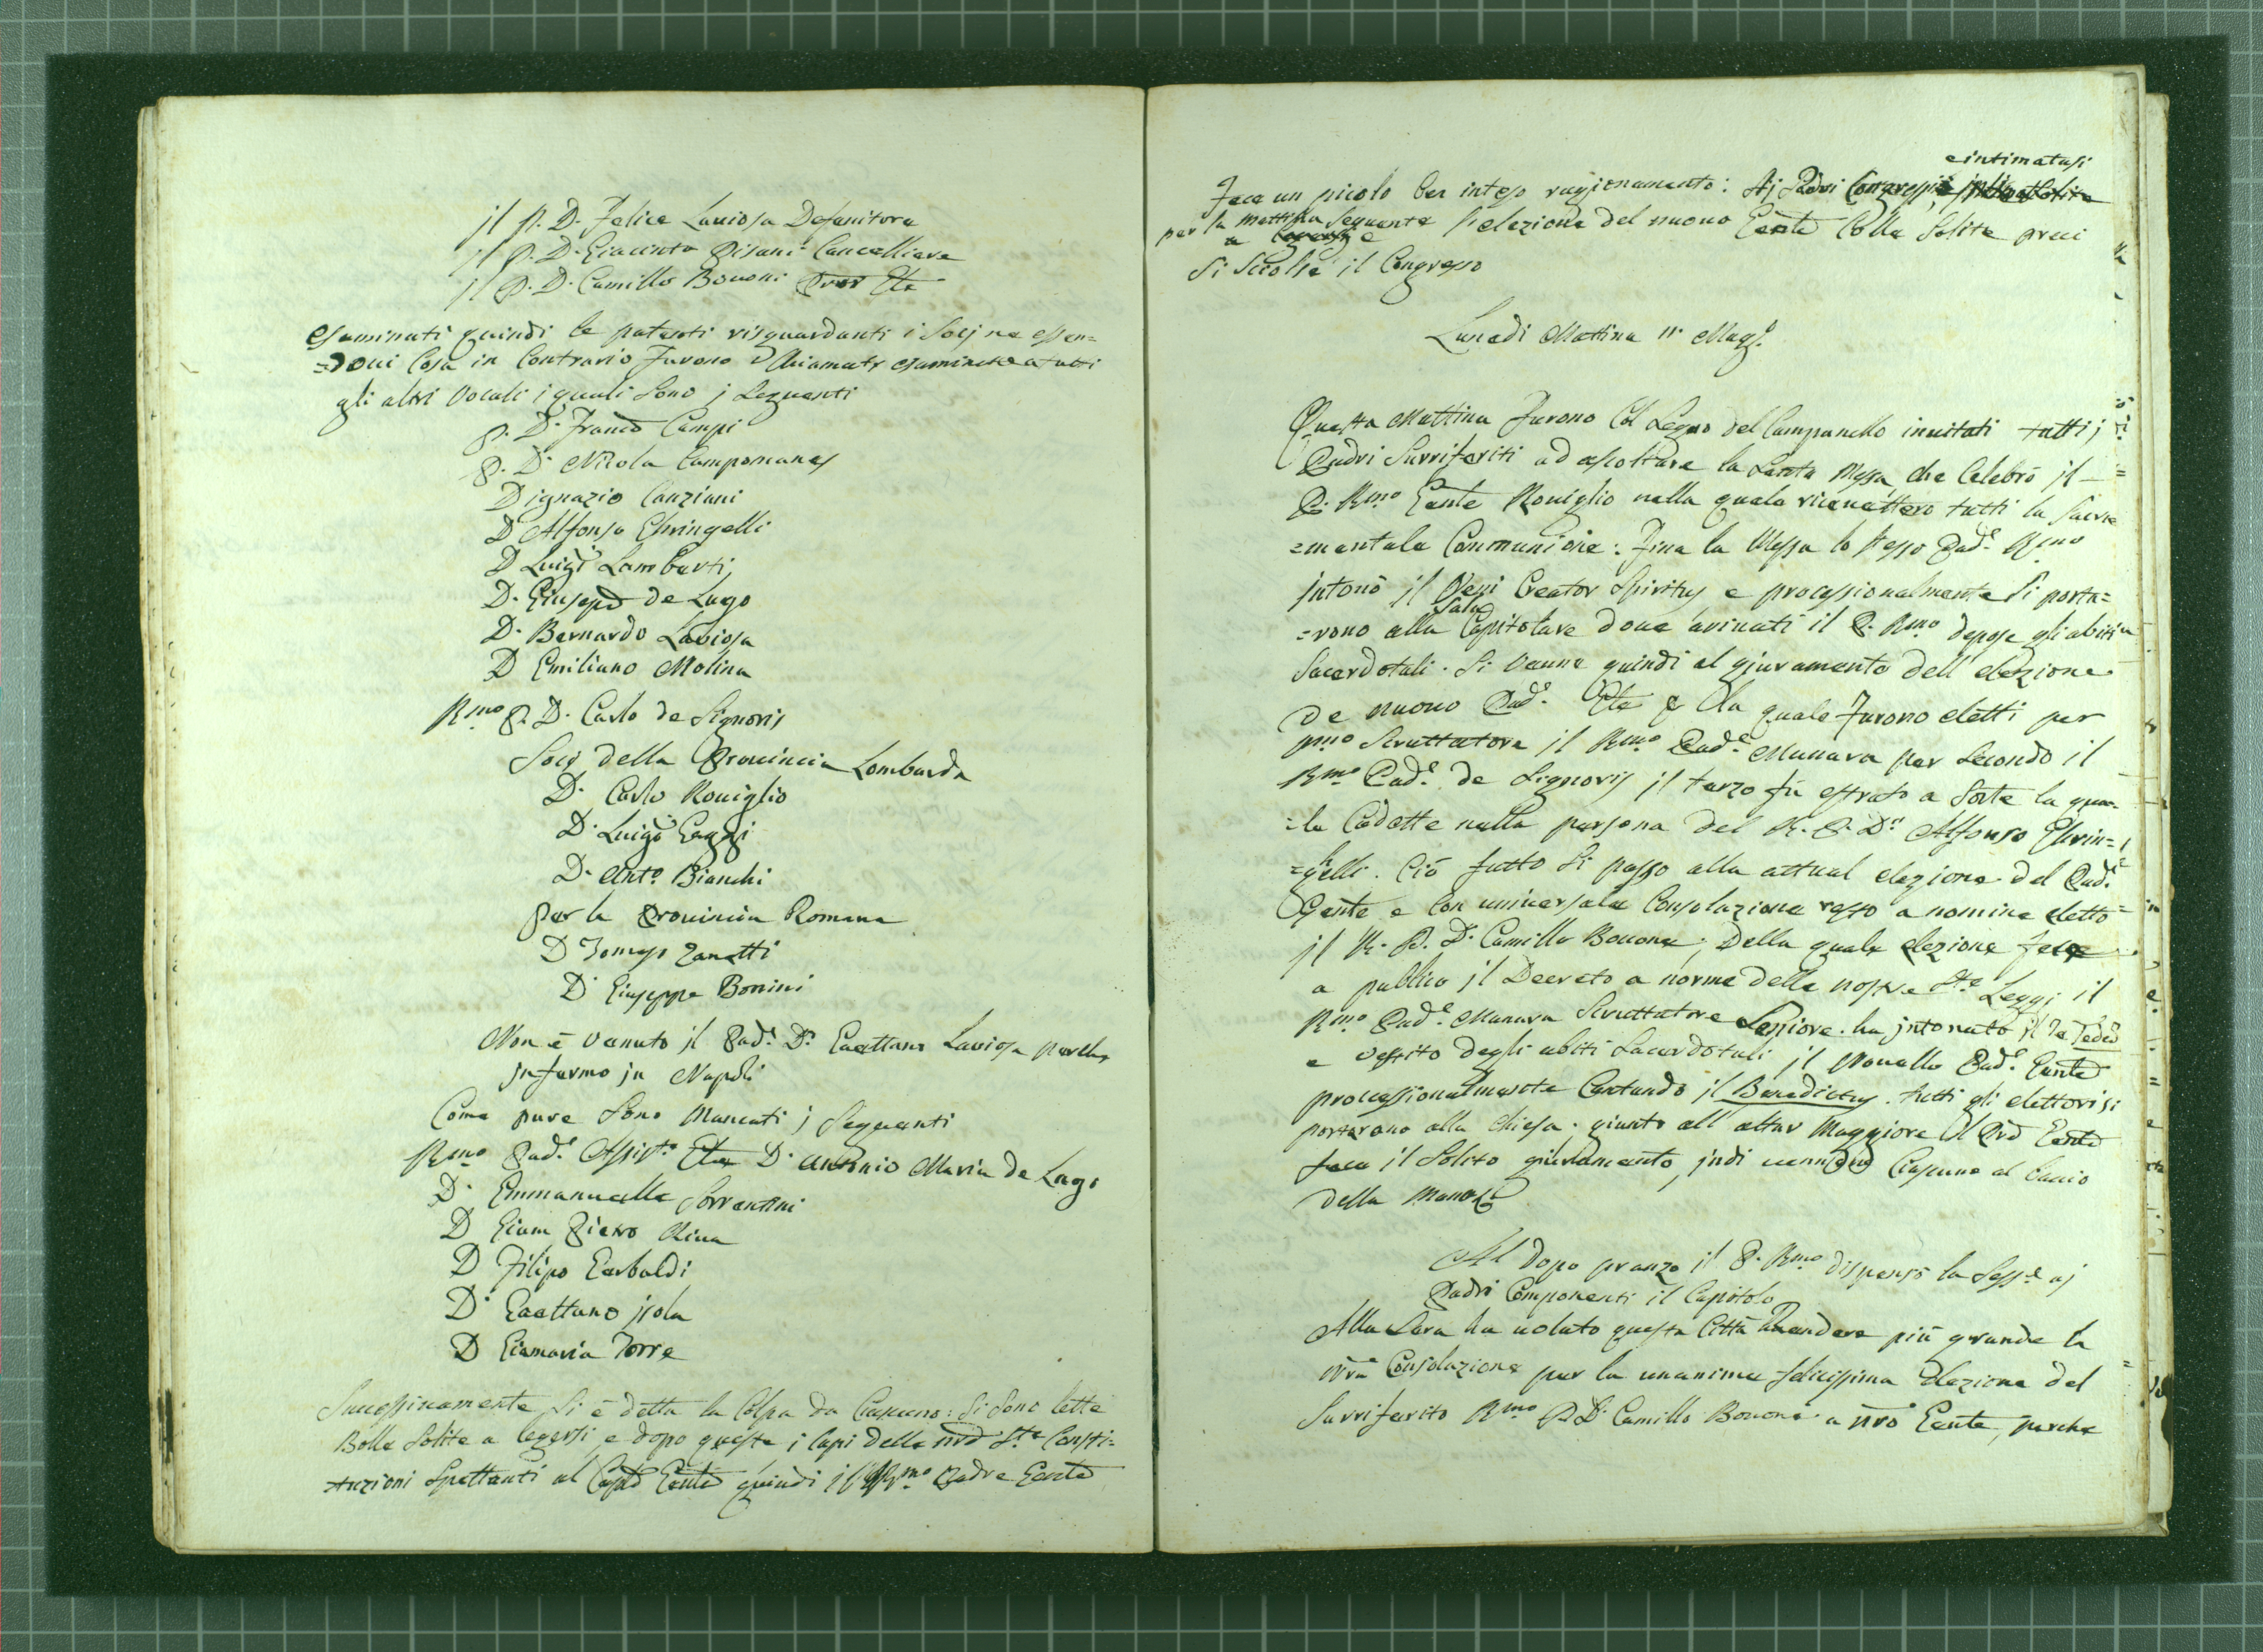 jl P. D. Felice Laviosa Defenitore
jl P. D. Giacinto Pisani Cancelliere
jl P. D. Camillo Bovoni
Esaminati quindi le patenti risguardanti i Socj ne essen=
=dovi Cosa in Contrario furono a tutti
gli altri Vocali i quali Sono j Seguenti
P. D. Franco Campi
P. D. Nicola Campomanes
D ignazio Canziani
D Alfonso Ghringelli
D Luigi Lamberti
D. Giusepe de Lugo
D. Bernardo Laviosa
D Emiliano Molina
Rmo P. D. Carlo de Signoris
Socj della Provincia Lombarda
D. Carlo Roviglio
D. Luigi Gaggi
D. Anto. Bianchi
Per la Provincia Romana
D Tomaso Zanotti
D. Giuseppe Bonini
Non è venuto jl Pade. D. Gaettano Laviosa perche
jnfermo jn Napoli
Come pure Sono Mancati j Seguenti
Rmo Pade. Assiste. D. Antonio Maria de Lugo
D. Emmanuelle Sorrentini
D Giam Pietro Riva
D Filipo Garbaldi
D. Gaettano jsola
D Giamaria Torre
Successivamente Si è detta la Colpa da Ciascuno: Si Sono lette
Bolle Solite a legersi, e dopo queste i Capi delle nre Ste Consti=
=tuzioni Spettanti al Capo Genle quindi jl Rmo Padre Genle
e intimatasi
Fece un picolo ben inteso ragionamento: Aj Padri Congregati
per la Mattina Seguente l'elezione del nuovo Genle Colle Solite preci
Si Sciolse il Congresso
Lunedi Mattina 11. Mago.
Questa Mattina Furono Col Segno del Campanello invitati tutti j
Padri Surriferiti ad ascoltare la Santa Messa, che Celebrò jl
P. Rmo Genle Roviglio nella quale ricevettero tutti la Sacra
=mentale Communione: Fina la Messa lo stesso Pade. Rmo
jntonò jl Veni Creator Spiritus e processionalmente Si porta=
Sala
=rono alla Capitolare dove avinati il P. Rmo depose gli abiti
Sacerdotali. Si venne quindi al giuramento dell'elezione
de nuovo Pade. Gle p la quale Furono eletti per
pmo Scruttatore jl Rmo Pade. Manara per Secondo il
Rmo Pade. de Signoris jl terzo fù estrato a Sorte la qua=
=le Cadette nella persona del R. P. D. Alfonso Ghrin=
=gelli. Ciò fatto Si passo alla attual elezione del Pade.
Genle e Con universale Consolazione resto a nomine eletto
jl R. P. D. Camillo Bovone; Della quale elezione fece
a publico jl Decreto a norma delle nostre Ste Leggi il
Rmo Pade. Manara Scruttatore Seniore. ha jntonato jl Te Deum
e vestito degli abiti Sacerdotali jl Novello Pade. Genle
processionalmente Cantando jl Benedictus. tutti gli elettori si
portarono alla Chiesa. giunto all'altar Maggiore il Genle
fece il Solito giuramento, jndi Ciascuno al bacio
della Mano
Al dopo pranzo il P. Rmo dispensò la Sesse aj
Padri Componenti il Capitolo
Alla Sera ha voluto questa Città Rendere più grande la
nra Consolazione per la unanime felicissima Elezione del
Surriferito Rmo P. D. Camillo Bovone a nro Genle, perche